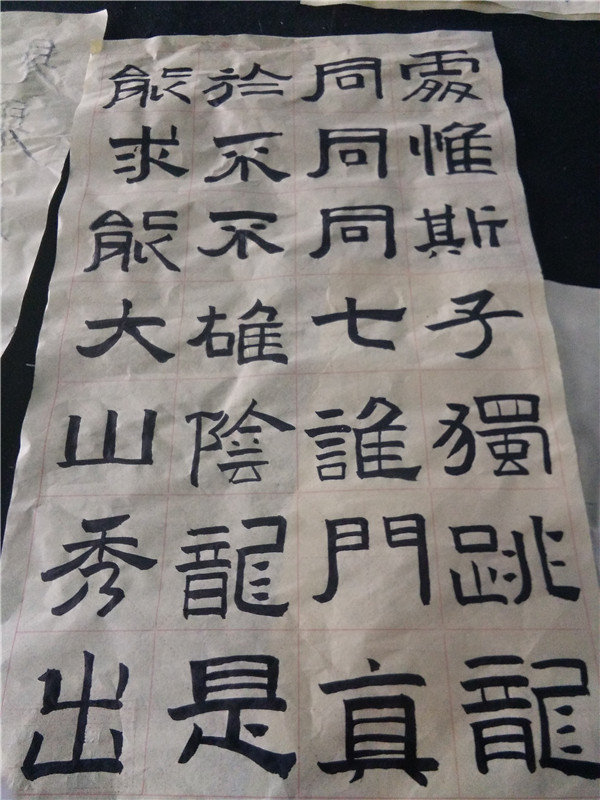 惟斯子獨跳龍
同同同七誰門真
於不不雄陰龍是
能求能大山秀出